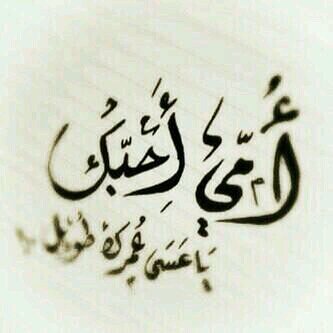 أُمّي أُحِبّكُ
يَا عَسَى عُمرك طُويل